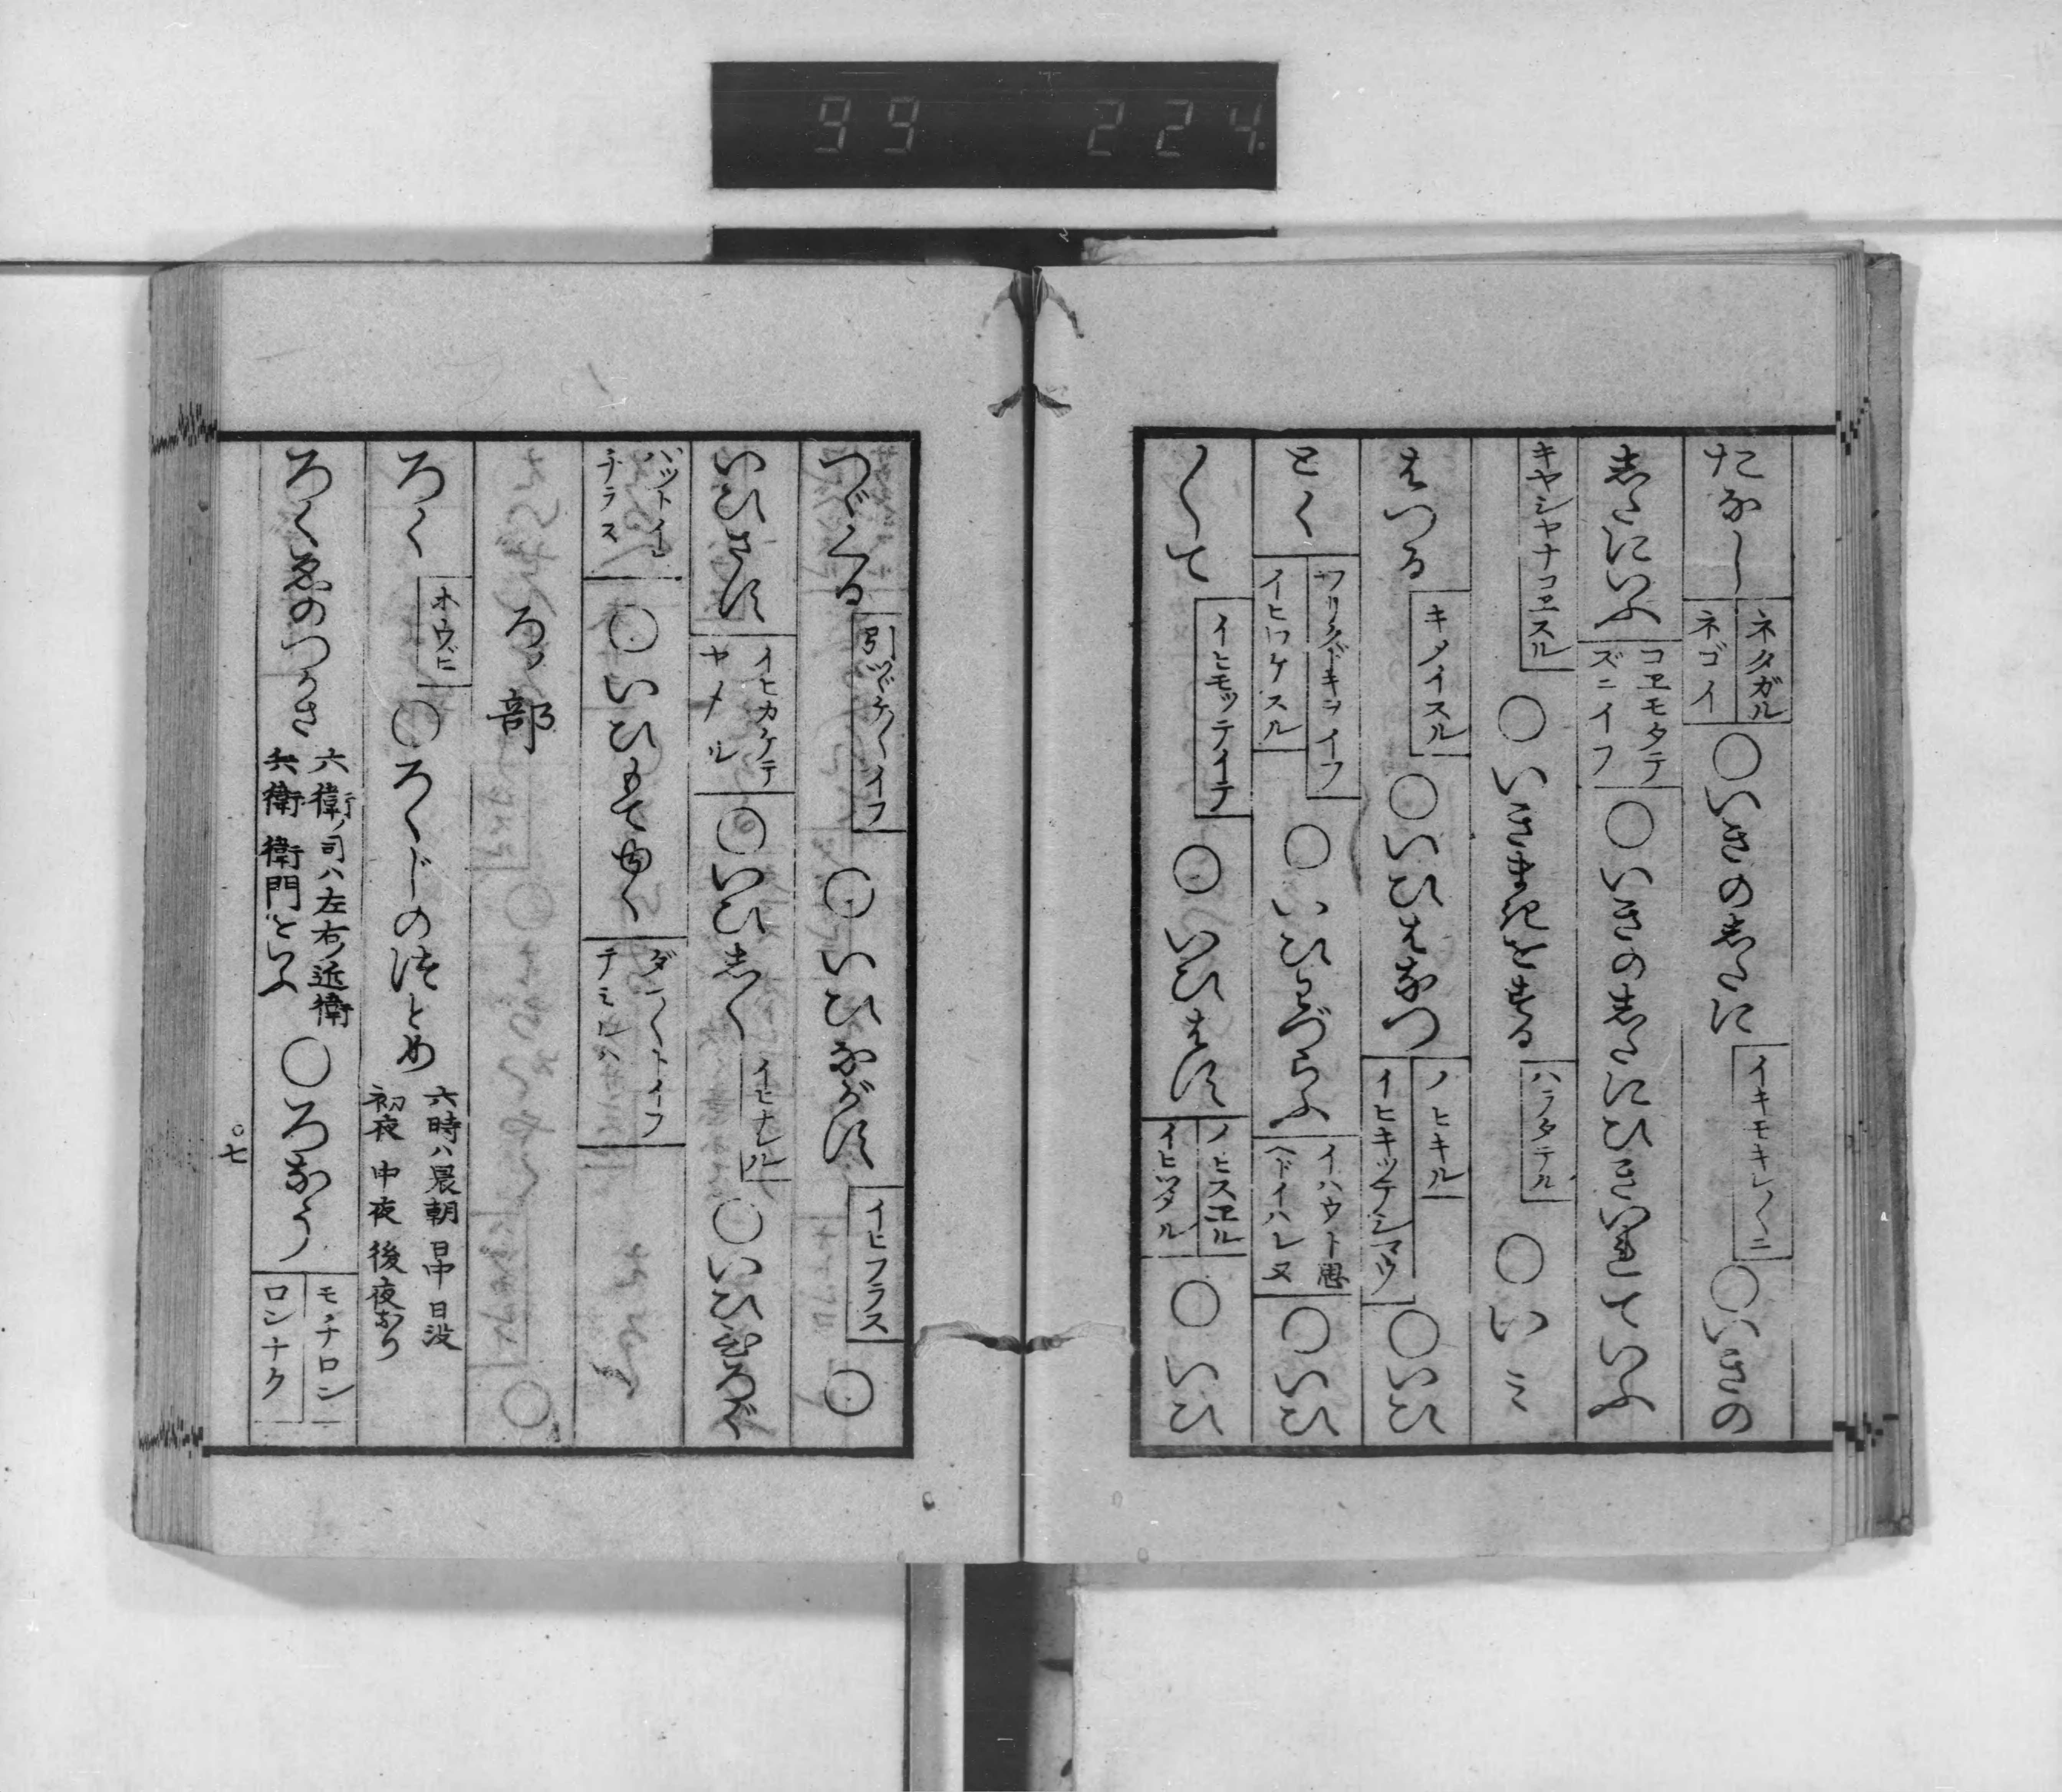 99 224
たなし ネタガル ネゴイ ○いきのしたに イキモキレ〱ニ ○いきの
したにいふ コヱモタテズニイフ ○いきのしたにひきいれていふ
キヤシヤナコヱスル ○いきまきをする ハラタテル ○いミ
はつる キノイスル ○いひはなつ ノヒキル イヒキツテシマツ ○いひ
とく ワリクドキヲイフ イヒワケスル ○いひわづらふ イハウト思ヘドイハレヌ ○いひ
〱て イヒモツテイテ ○いひはす ノヒスヱル イヒツタル ○いひ
つゞくる 引ツヾケ〱イフ ○いひながす イヒフラス ○
いひさす イヒカケテヤメル ○いひしく イヒナル ○いひひろぐ
パツトイヒチラス ○いひもてゆく ダン〱トイフテミルハ
ろノ部
ろく ホウビ ○ろくじのつとめ 六時ハ晨朝 日中 日没 初夜 中夜 後夜なり
ろくゑのつかさ 六衛ノ司ハ左右ノ近衛 兵衛 衛門といふ ○ろなう モチロン ロンナク
○七